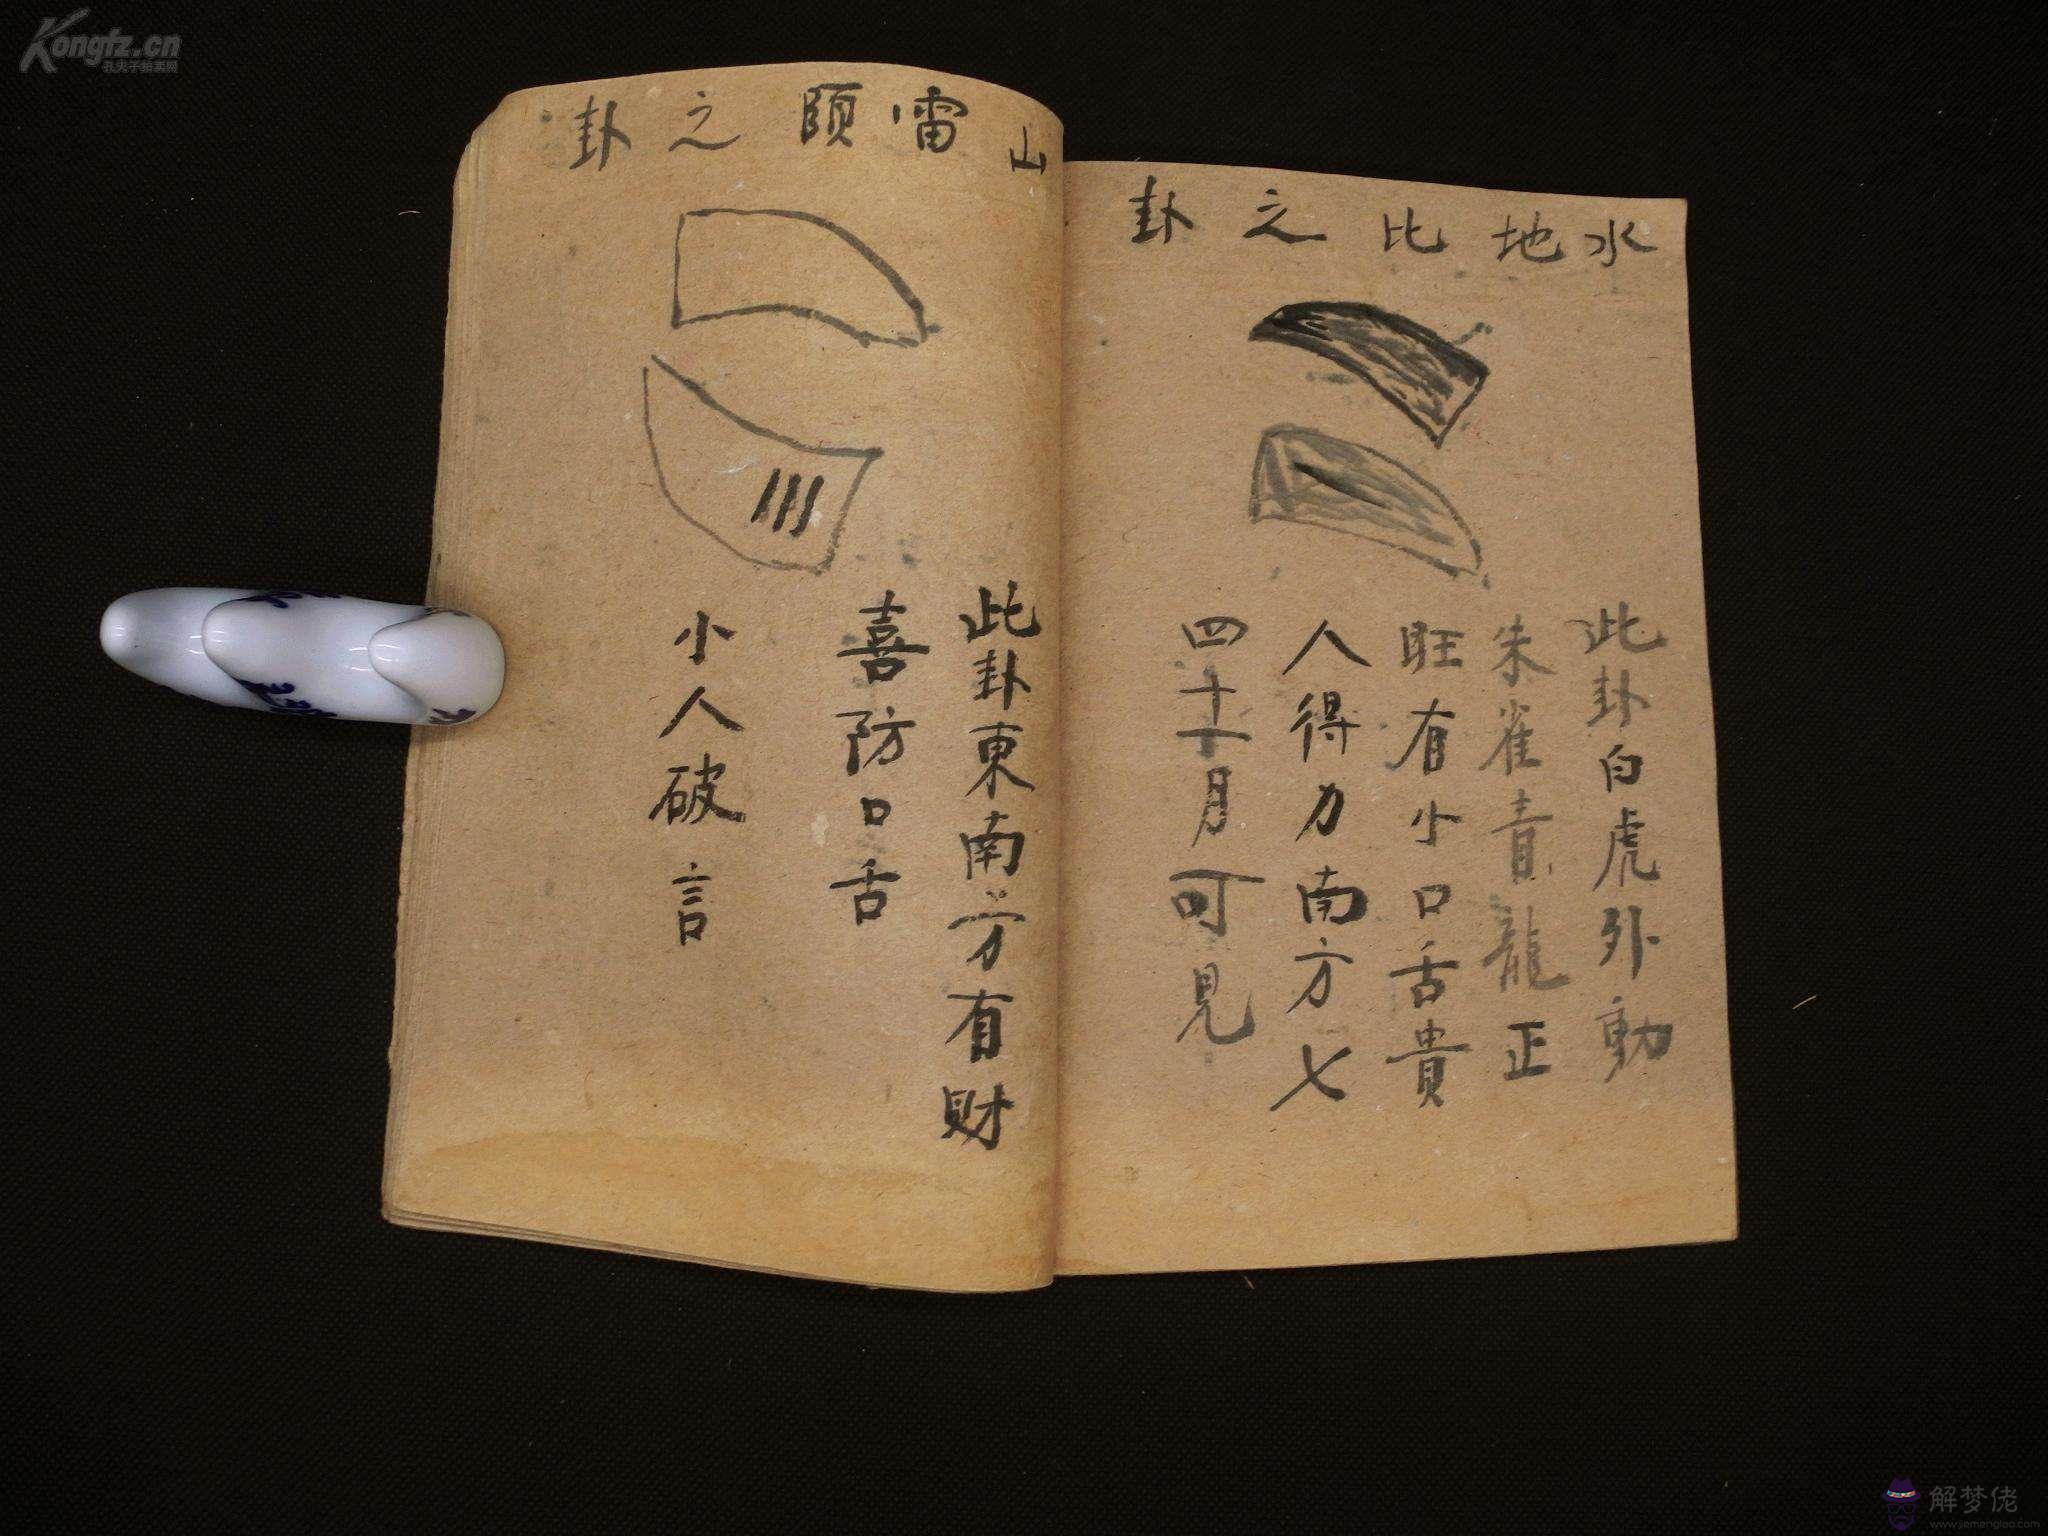 Kongfz.cn
孔夫子拍卖网
水地比之卦
此卦白虎外動
朱雀青龍正
旺有小口舌貴
人得力南方七
四十一月可見
山雷頤之卦
此卦東南方有財
喜防口舌
小人破言
解梦佬
www.jiemenglao.com